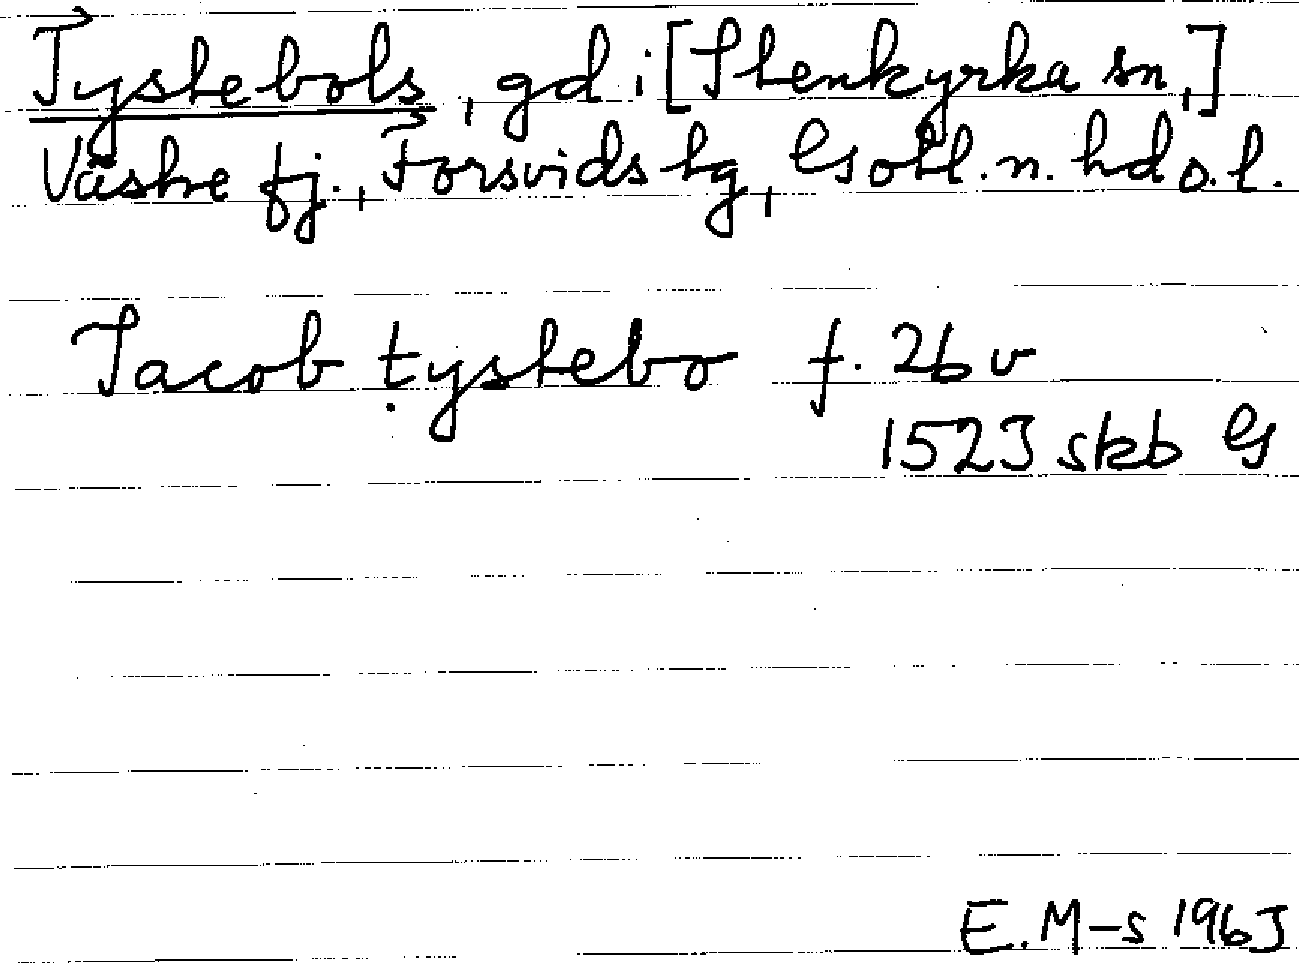 Tystebols, gd i [Stenkyrka sn,]
Västre fj., Forsvids tg, Gotl. n. hd o. l.
Jacob tystebo f. 26 v
1523 skb G
E. M-s 1963